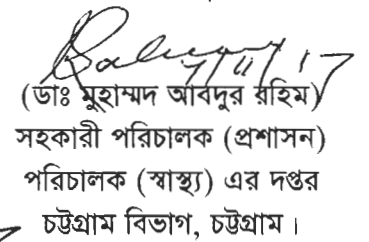 7/11/17
(ডাঃ মুহাম্মদ আবদুর রহিম)
সহকারী পরিচালক (প্রশাসন)
পরিচালক (স্বাস্থ্য) এর দপ্তর
চট্টগ্রাম বিভাগ, চট্টগ্রাম।